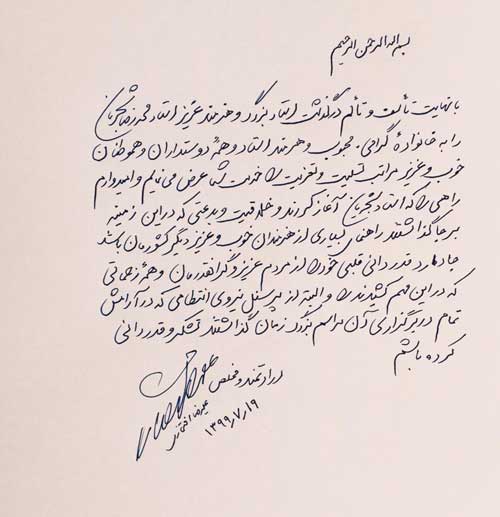 بسم الله الرحمن الرحیم
با نهایت تأسف و تألم درگذشت استاد بزرگ و هنرمند عزیز استاد محمدرضا شجریان
را به خانوادهٔ گرامی، محبوب و هنرمند استاد و همهٔ دوستداران و هموطنان
خوب و عزیز مراتب تسلیت و تعزیت را خدمت شما عرض می نمایم و امیدوارم
راهی را که استاد شجریان آغاز کردند و خلاقیت و بدعتی که در این زمینه
بر جا گذاشتند راهنمای بسیاری از هنرمندان خوب و عزیز دیگر کشورمان باشد
جا دارد قدردانی قلبی خود را از مردم عزیز و گرانقدرمان و همهٔ زحماتی
که در این مهم کشیدند و البته از پرسنل نیروی انتظامی که در آرامش
تمام در برگزاری آن مراسم بزرگ زمان گذاشتند تشکر و قدردانی
کرده باشم
ارادتمند و مخلص
علیرضا افتخاری
۱۳۹۹٫۷٫۱۹